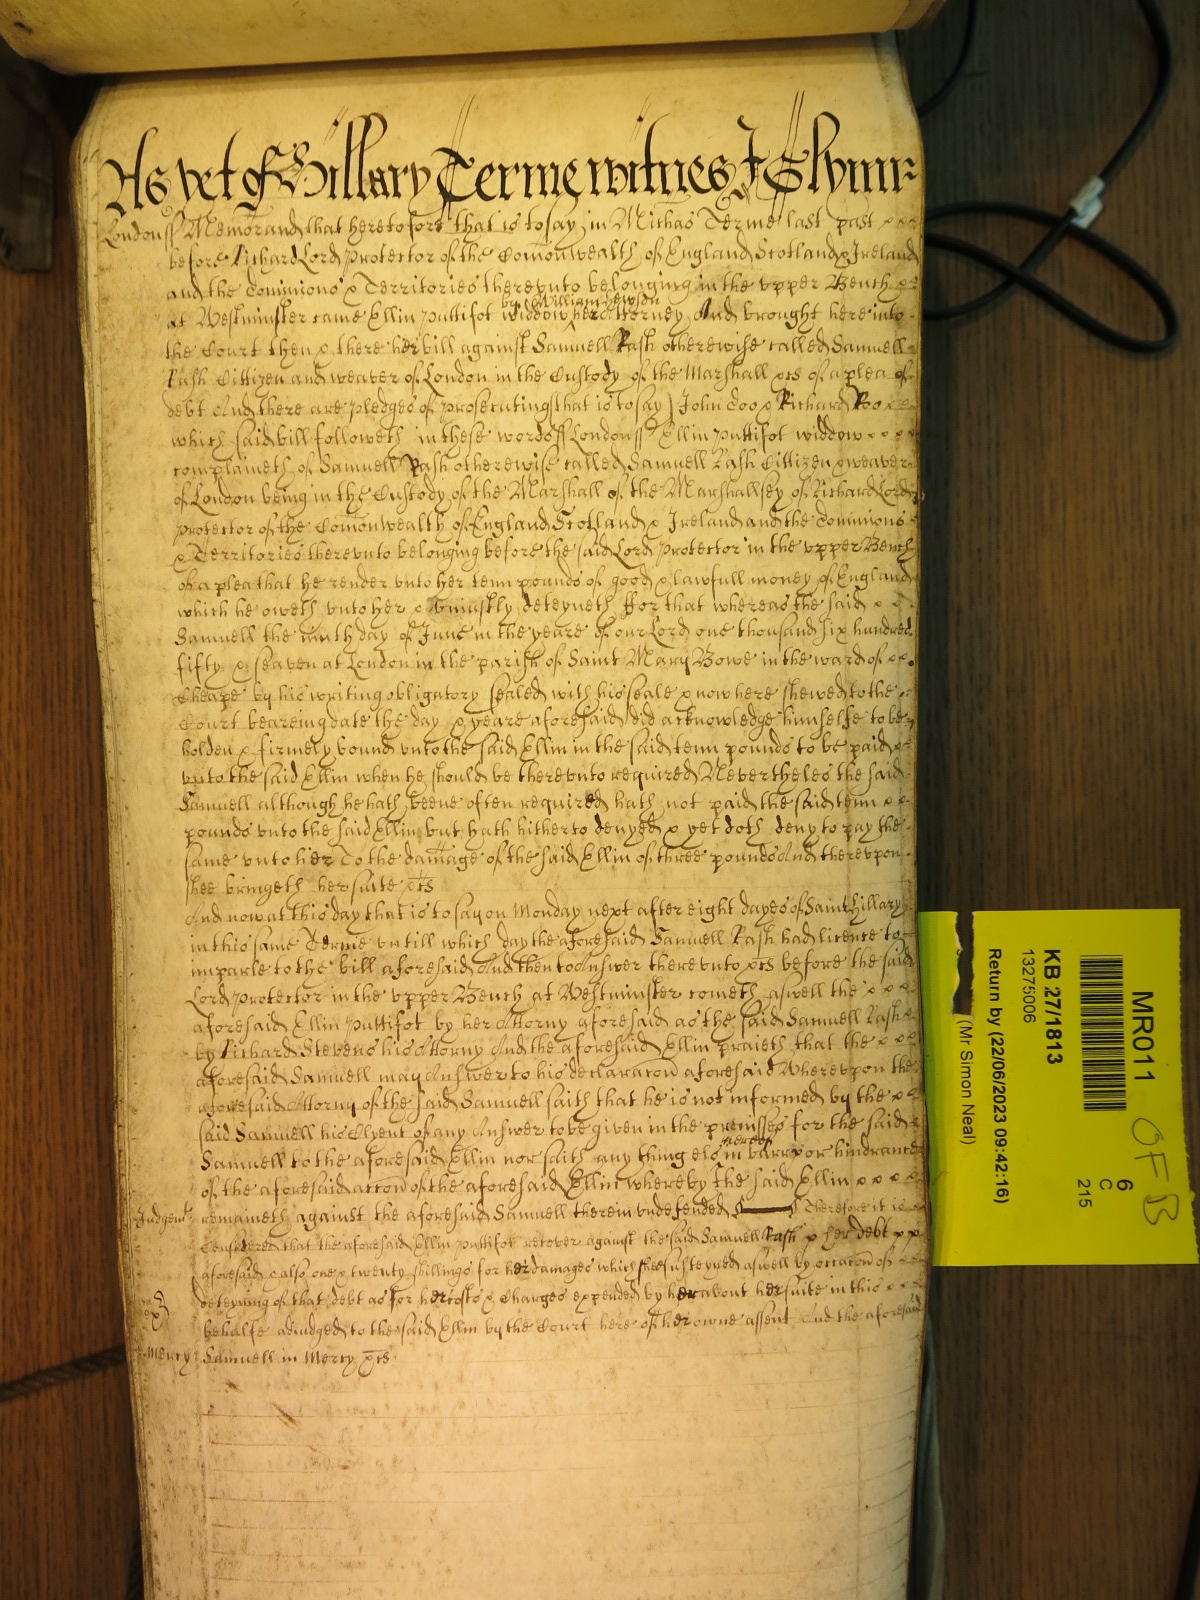 As yet of Hillary Terme witnes J Glynn
London ss Memorand that heretofore that is to say in Michas Terme last past x x x
before Richard Lord Protector of the Comonwealth of England Scotland & Ireland
and the Dominions & Territories thereunto belonging in the upper Bench x x
by William Hewson
at Westminster came Ellin Puttifot widdow her Attorney And brought here into
the Court then & there her bill against Samuell Rash otherwise called Samuell
Rash Cittizen and weaver of London in the Custody of the Marshall &cs of a plea of
debt And there are pledges of prosecuting that is to say John Doo & Richard Roo x x x
which said bill followeth in these words ss London ss Ellin Puttifot widdow x x x x
complaineth of Samuell Rash otherwise called Samuell Rash Cittizen & weaver
of London being in the Custody of the Marshall of the Marshallsey of Richard Lord
Protector of the Comonwealth of England Scotland & Ireland and the Dominions
& Territories thereunto belonging before the said Lord Protector in the upper Bench
of a plea that he render unto her tenn pounds of good & lawfull money of England
which he oweth unto her & uniustly deteyneth ffor that whereas the said x x
Samuell the day of June in the yeare of our Lord one thousand six hundred
fifty & seaven at London in the parish of Saint Mary Bowe in the ward of x x
Cheape by his writing obligatory sealed with his seale & now here shewed to the x
Court beareing date the day & yeare aforesaid did acknowledge himselfe to be
holden & firmely bound unto the said Ellin in the said tenn pounds to be paid x
unto the said Ellin when he should be thereunto required Nevertheles the said
Samuell although he hath beene often required hath not paid the said tenn x x
pounds unto the said Ellin but hath hitherto denyed & yet doth deny to pay the
same unto her To the damage of the said Ellin of three pounds And thereupon
shee bringeth her suite &cs
And now at this day that is to say on Monday next after eight dayes of Saint Hillary
in this same Terme untill which day the aforesaid Samuell Rash had licence to
imparle to the bill aforesaid And then to Answer thereunto &cs before the said
Lord Protector in the upper Bench at Westminster cometh aswell the x x x
aforesaid Ellin Puttifot by her Attorny aforesaid as the said Samuell Rash
by Richard Stevens his Attorny And the aforesaid Ellin praieth that the x x x
aforesaid Samuell may Answer to his declaracon aforesaid Whereupon the
aforesaid Attorny of the said Samuell saith that he is not informed by the x x
said Samuell his Clyent of any Answer to be given in the premisses for the said
thereof
Samuell to the aforesaid Ellin nor saith any thing els in barr or hindrance
of the aforesaid accon of the aforesaid Ellin whereby the said Ellin x x x x
Judgemt remaineth against the aforesaid Samuell therein undefended Therefore it is
Considered that the aforesaid Ellin Puttifot recover against the said Samuell Rash & her debt x x
aforesaid & also one & twenty shillings for her damages which shee susteyned aswell by occacon of
deteyning of that debt as for her costs & Charges expended by her about her suite in this x x x
behalfe adiudged to the said Ellin by the Court here of her owne assent And the aforesaid
Mercy Samuell in Mercy &cs
MR011
KB 27/1813
13275006
Return by (22/06/2023 09:42:16)
(Mr Simon Neal)
6
C
215
OFB